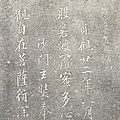 貞觀廿二年八月
般若波羅蜜多心
沙門玄奘奉
觀自在菩薩行深